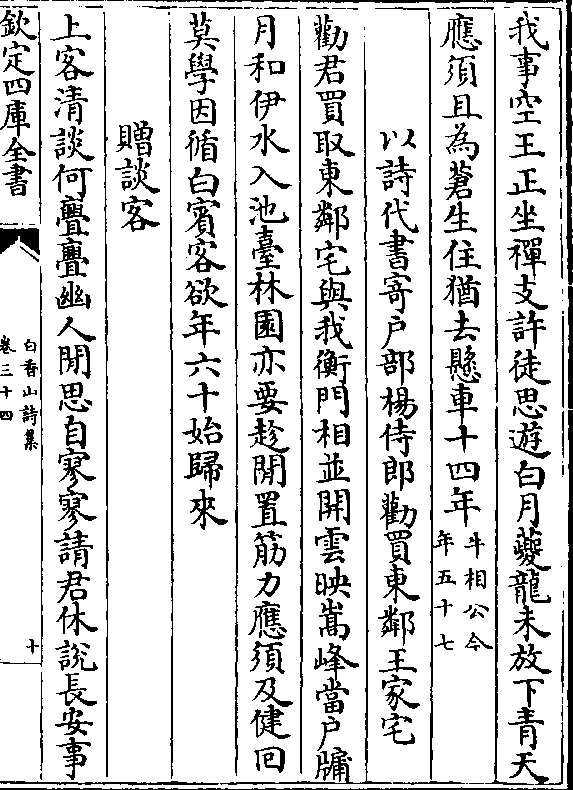 我事空王正坐禪支許徒思遊白月夔龍未放下青天
應須且為蒼生住猶去懸車十四年牛相公今年五十七
以詩代書寄戶部楊侍郎勸買東鄰王家宅
勸君買取東鄰宅與我衡門相並開雲映嵩峰當戶牖
月和伊水入池臺林園亦要趁閒置筋力應須及健回
莫學因循白賓客欲年六十始歸來
贈談客
上客清談何亹亹幽人閒思自寥寥請君休說長安事
欽定四庫全書
白香山詩集
卷三十四
十